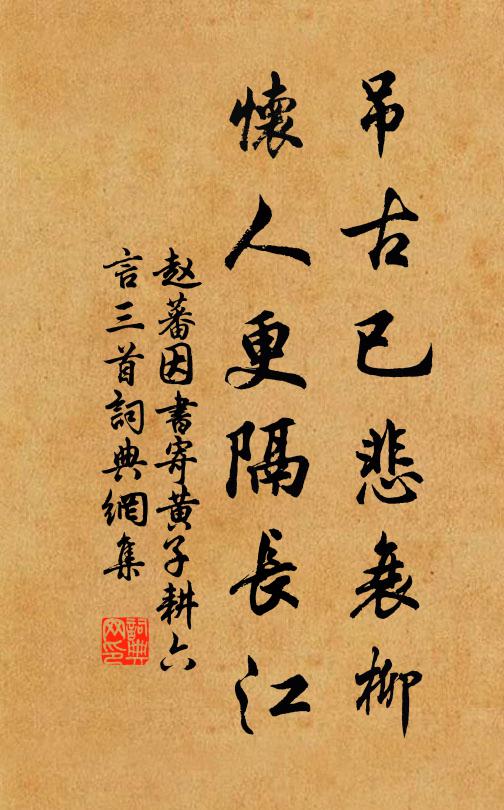 吊古已悲衰柳
懷人更隔長江
赵蕃因書寄黄子耕六
言三首詞典網集
詞典
网印